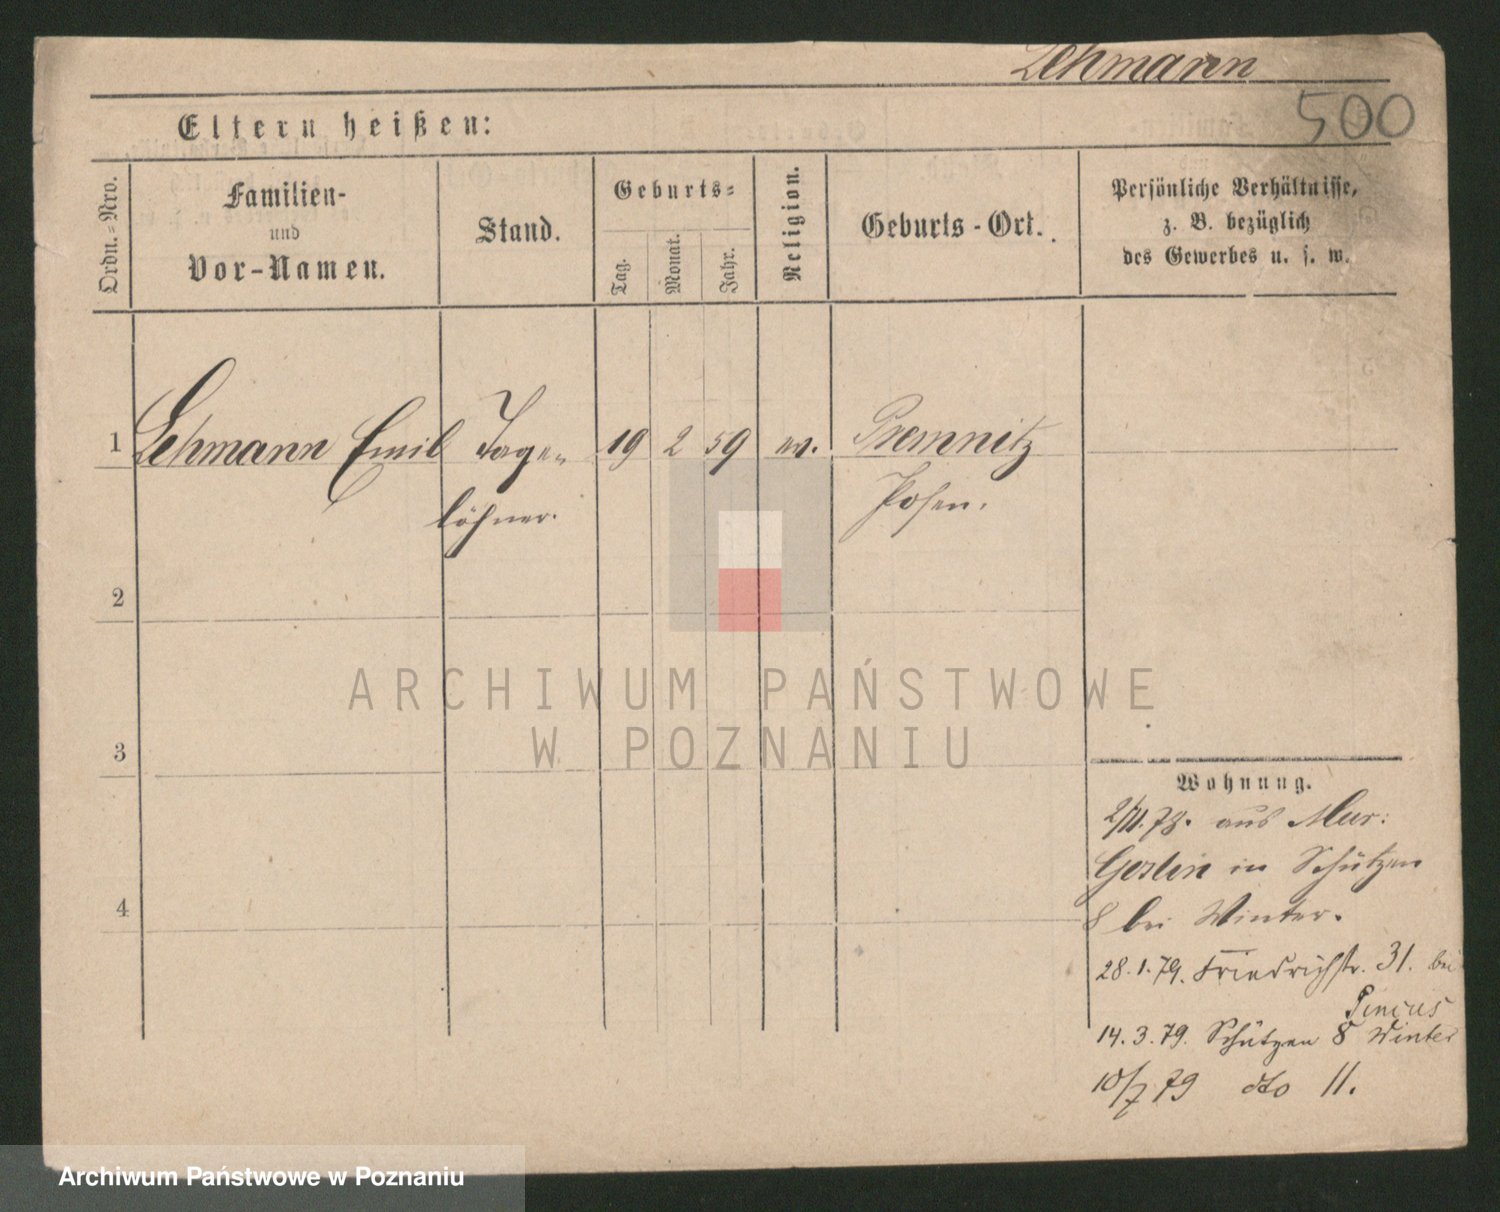 Lehmann
500
Eltern heißen:
Ordn.-Nro.
Familien-
und
Vor-Namen.
Stand.
Geburts-
Tag.
Monat.
Jahr.
Religion.
Geburts-Ort.
Persönliche Verhältnisse,
z. B. bezüglich
des Gewerbes u. s. w.
1 Lehmann Emil Tage- 19 2 59 ev. Premnitz
löhner. Posen.
2
3
4
ARCHIWUM PAŃSTWOWE
W POZNANIU
Wohnung.
2/11.78. aus Mur:
Goslin in Schützen
8 bei Winter.
28.1.79. Friedrichstr. 31. bei
Pincus
14.3.79. Schützen 8 Winter
10/7 79 dto 11.
Archiwum Państwowe w Poznaniu